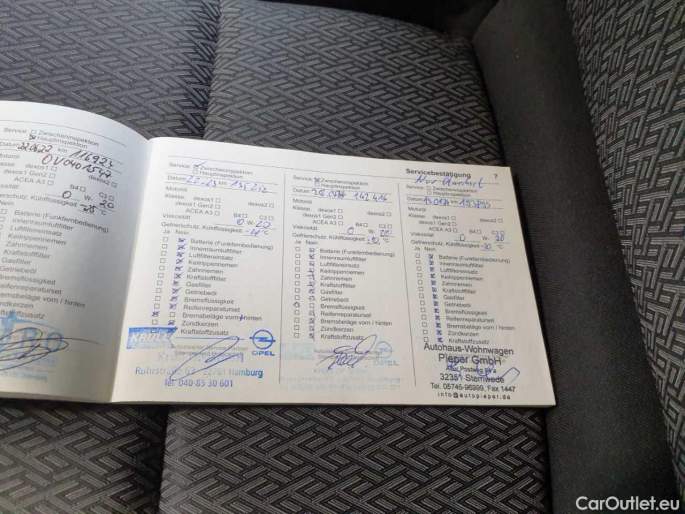 Service: Zwischeninspektion
Hauptinspektion
Datum 22.06.22 km 116923
OV0401547
dexos1
dexos1 Gen2 dexos2
ACEA A3 B4 C3
0 W- 20
°C
Batterie (Funkfernbedienung)
Innenraumluftfilter
Luftfiltereinsatz
Keilrippenriemen
Zahnriemen
Kraftstofffilter
Gasfilter
Getriebeöl
Bremsflüssigkeit
Reifenreparaturset
Bremsbeläge vorn / hinten
Zündkerzen
Kraftstoffzusatz
Servicebestätigung 7
Service: Zwischeninspektion
Hauptinspektion
Datum km
Motoröl
Klasse: dexos1
dexos1 Gen2 dexos2
ACEA A3 B4 C3
Viskosität 0 W- 20
Gefrierschutz, Kühlflüssigkeit °C
Ja Nein
Batterie (Funkfernbedienung)
Innenraumluftfilter
Luftfiltereinsatz
Keilrippenriemen
Zahnriemen
Kraftstofffilter
Gasfilter
Getriebeöl
Bremsflüssigkeit
Reifenreparaturset
Bremsbeläge vorn / hinten
Zündkerzen
Kraftstoffzusatz
KRÜLL
OPEL
22761 Hamburg
Tel. 040-85 30 601
Service: Zwischeninspektion
Hauptinspektion
Datum km 142414
Motoröl
Klasse: dexos1
dexos1 Gen2 dexos2
ACEA A3 B4 C3
Viskosität 0 W- 20
Gefrierschutz, Kühlflüssigkeit °C
Ja Nein
Batterie (Funkfernbedienung)
Innenraumluftfilter
Luftfiltereinsatz
Keilrippenriemen
Zahnriemen
Kraftstofffilter
Gasfilter
Getriebeöl
Bremsflüssigkeit
Reifenreparaturset
Bremsbeläge vorn / hinten
Zündkerzen
Kraftstoffzusatz
OPEL
Datum km
Motoröl
Klasse: dexos1
dexos1 Gen2 dexos2
ACEA A3 B4 C3
Viskosität 0 W-
Gefrierschutz, Kühlflüssigkeit °C
Ja Nein
Batterie (Funkfernbedienung)
Innenraumluftfilter
Luftfiltereinsatz
Keilrippenriemen
Zahnriemen
Kraftstofffilter
Gasfilter
Getriebeöl
Bremsflüssigkeit
Reifenreparaturset
Bremsbeläge vorn / hinten
Zündkerzen
Kraftstoffzusatz
Autohaus-Wohnwagen
Pieper GmbH
Alter Postweg
32351 Stemwede
Tel. 05745-96999, Fax 1447
info@autopieper.de
CarOutlet.eu